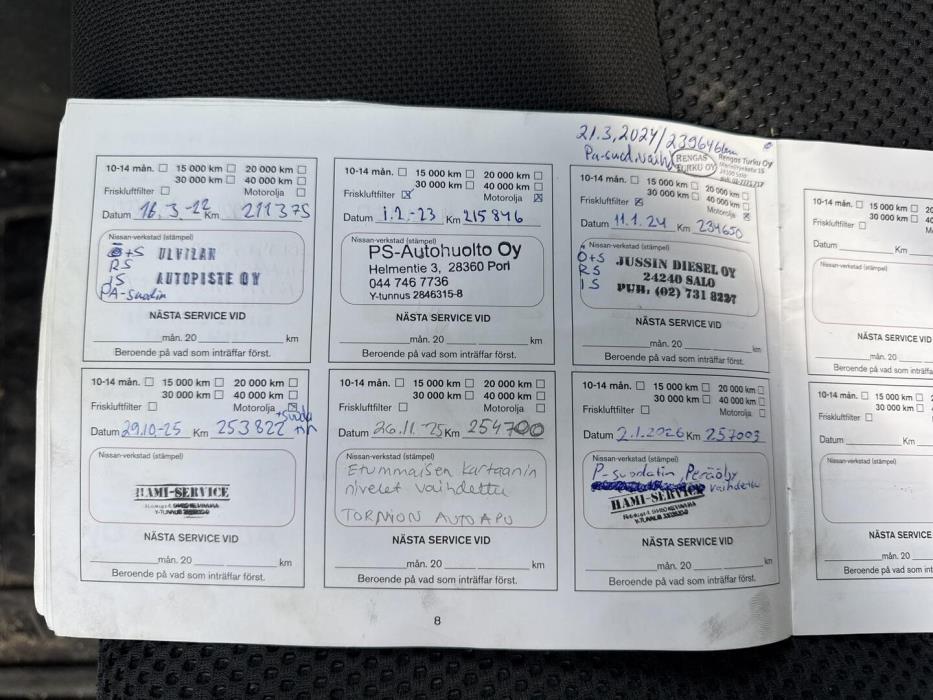 21.3.2024/239646km
Pa-suod.vaihd
RENGAS
TURKU OY
Rengas Turku Oy
24100 Salo
10-14 mån. ☐ 15 000 km ☐ 20 000 km ☐
30 000 km ☐ 40 000 km ☐
Friskluftfilter ☐ Motorolja
Datum 16.3-22 Km 211375
Nissan-verkstad (stämpel)
Ö+S ULVILAN
RS
IS AUTOPISTE OY
PA-suodin
NÄSTA SERVICE VID
mån. 20 km
Beroende på vad som inträffar först.
10-14 mån. ☐ 15 000 km ☐ 20 000 km ☐
30 000 km ☐ 40 000 km ☐
Friskluftfilter ☒ Motorolja ☒
Datum 1.2.-23 Km 215846
Nissan-verkstad (stämpel)
PS-Autohuolto Oy
Helmentie 3, 28360 Pori
044 746 7736
Y-tunnus 2846315-8
NÄSTA SERVICE VID
mån. 20 km
Beroende på vad som inträffar först.
10-14 mån. ☐ 15 000 km ☐ 20 000 km ☐
30 000 km ☐ 40 000 km ☐
Friskluftfilter ☒ Motorolja ☒
Datum 11.1.24 Km 234650
Nissan-verkstad (stämpel)
Ö+S JUSSIN DIESEL OY
RS 24240 SALO
IS PUH. (02) 731 8227
NÄSTA SERVICE VID
mån. 20 km
Beroende på vad som inträffar först.
10-14 mån. ☐ 15 000 km ☐ 20 000 km
30 000 km ☐ 40 000
Friskluftfilter ☐
Datum Km
Nissan-verkstad (stämpel)
NÄSTA SERVICE VID
mån. 20
Beroende på vad som inträffar
10-14 mån. ☐ 15 000 km ☐ 20 000 km ☐
30 000 km ☐ 40 000 km ☐
Friskluftfilter ☐ Motorolja ☒
Datum 29.10-25 Km 253822
Nissan-verkstad (stämpel)
HAMI-SERVICE
NÄSTA SERVICE VID
mån. 20 km
Beroende på vad som inträffar först.
10-14 mån. ☐ 15 000 km ☐ 20 000 km ☐
30 000 km ☐ 40 000 km ☐
Friskluftfilter ☐ Motorolja ☐
Datum 26.11.25 Km 254700
Nissan-verkstad (stämpel)
Etummaisen kartaanin
nivelet vaihdettu
TORNION AUTOAPU
NÄSTA SERVICE VID
mån. 20 km
Beroende på vad som inträffar först.
10-14 mån. ☐ 15 000 km ☐ 20 000 km ☐
30 000 km ☐ 40 000 km ☐
Friskluftfilter ☐ Motorolja ☐
Datum 2.1.2026 Km 257003
Nissan-verkstad (stämpel)
P-suodatin Peräöljy
vaihdettu
HAMI-SERVICE
NÄSTA SERVICE VID
mån. 20 km
Beroende på vad som inträffar först.
10-14 mån. ☐ 15 000 km ☐ 20 000
30 000 km ☐ 40
Friskluftfilter ☐
Datum Km
Nissan-verkstad (stämpel)
NÄSTA SERVICE VID
mån. 20
Beroende på vad som int
8